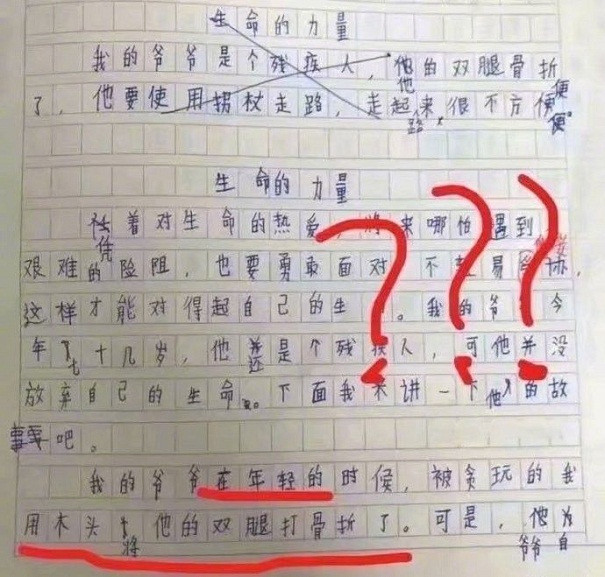 生命的力量
我的爷爷是个残疾人，他的双腿骨折
了，他要使用拐杖走路，走起路来很不方便。
生命的力量
凭着对生命的热爱，将来哪怕遇到
艰难的险阻，也要勇敢面对，不轻易
这样才能对得起自己的生。我的爷今
年七十几岁，他还是个残疾人，可他并没
放弃自己的生命。下面我来讲一下他的故
事吧。
我的爷爷在年轻的时候，被贪玩的我
用木头将他的双腿打骨折了。可是，爷爷